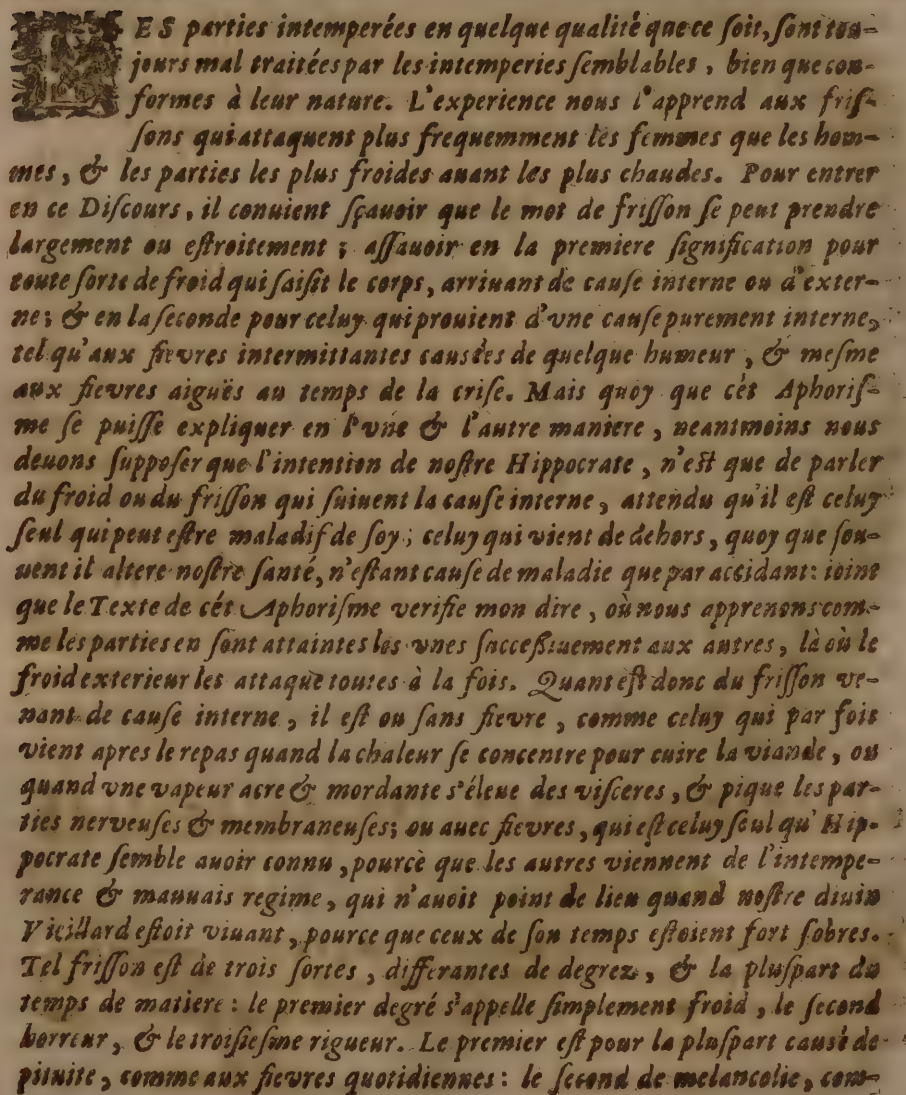 LES parties intemperées en quelque qualité que ce ſoit, ſont tou-
jours mal traitées par les intemperies ſemblables, bien que con-
formes à leur nature. L'experience nous l'apprend aux friſ-
ſons qui attaquent plus frequemment les femmes que les hom-
mes, & les parties les plus froides auant les plus chaudes. Pour entrer
en ce Diſcours, il conuient ſçauoir que le mot de friſſon ſe peut prendre
largement ou eſtroitement; aſſauoir en la premiere ſignification pour
toute ſorte de froid qui ſaiſit le corps, arriuant de cauſe interne ou d'exter-
ne; & en la ſeconde pour celuy qui prouient d'vne cauſe purement interne,
tel qu'aux fievres intermittantes cauſées de quelque humeur, & meſme
aux fievres aiguës au temps de la criſe. Mais quoy que cét Aphoriſ-
me ſe puiſſe expliquer en l'vne & l'autre maniere, neantmoins nous
deuons ſuppoſer que l'intention de noſtre Hippocrate, n'eſt que de parler
du froid ou du friſſon qui ſuiuent la cauſe interne, attendu qu'il eſt celuy
ſeul qui peut eſtre maladif de ſoy; celuy qui vient de dehors, quoy que ſou-
uent il altere noſtre ſanté, n'eſtant cauſe de maladie que par accidant: ioint
que le Texte de cét Aphoriſme verifie mon dire, où nous apprenons com-
me les parties en ſont attaintes les vnes ſucceſſiuement aux autres, là où le
froid exterieur les attaque toutes à la fois. Quant eſt donc du friſſon ve-
nant de cauſe interne, il eſt ou ſans fievre, comme celuy qui par fois
vient apres le repas quand la chaleur ſe concentre pour cuire la viande, ou
quand vne vapeur acre & mordante s'éleue des viſceres, & pique les par-
ties nerveuſes & membraneuſes; ou auec fievres, qui eſt celuy ſeul qu'Hip-
pocrate ſemble auoir connu, pource que les autres viennent de l'intempe-
rance & mauuais regime, qui n'auoit point de lieu quand noſtre diuin
Vieillard eſtoit viuant, pource que ceux de ſon temps eſtoient fort ſobres.
Tel friſſon eſt de trois ſortes, differantes de degrez, & la pluſpart du
temps de matiere: le premier degré s'appelle ſimplement froid, le ſecond
horreur, & le troiſieſme rigueur. Le premier eſt pour la pluſpart cauſé de
pituite, comme aux fievres quotidiennes: le ſecond de melancolie, com-